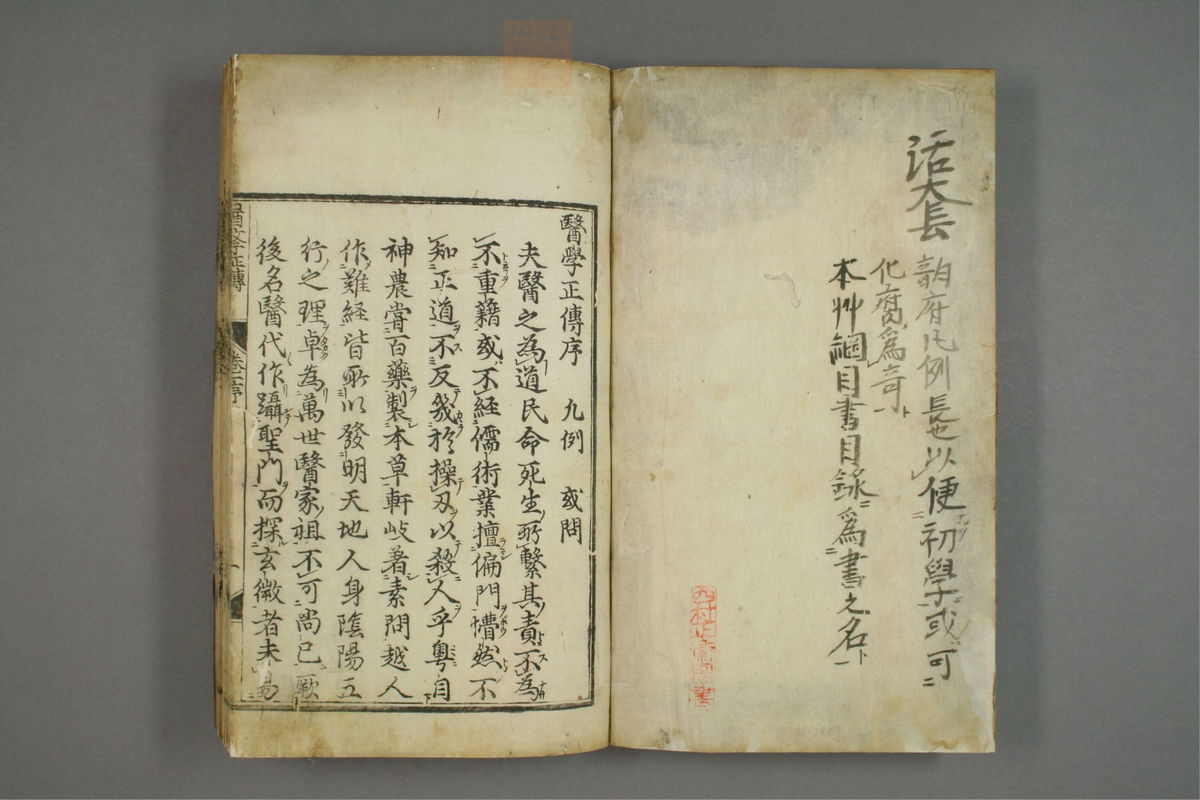 活套
韵府凡例長也以便初學或可
化腐爲奇
本艸綱目書目録爲書之名
醫學正傳序　九例　或問
夫醫之為道民命死生所繫其責不為
不重籍或不經儒術業擅偏門懵然不
知正道不反幾於操刃以殺人乎粤自
神農甞百藥製本草軒岐著素問越人
作難経皆所以發明天地人身陰陽五
行之理卓為萬世醫家祖不可尚已厥
後名醫代作躡聖門而探玄微者未易
醫学正傳　卷之序　一